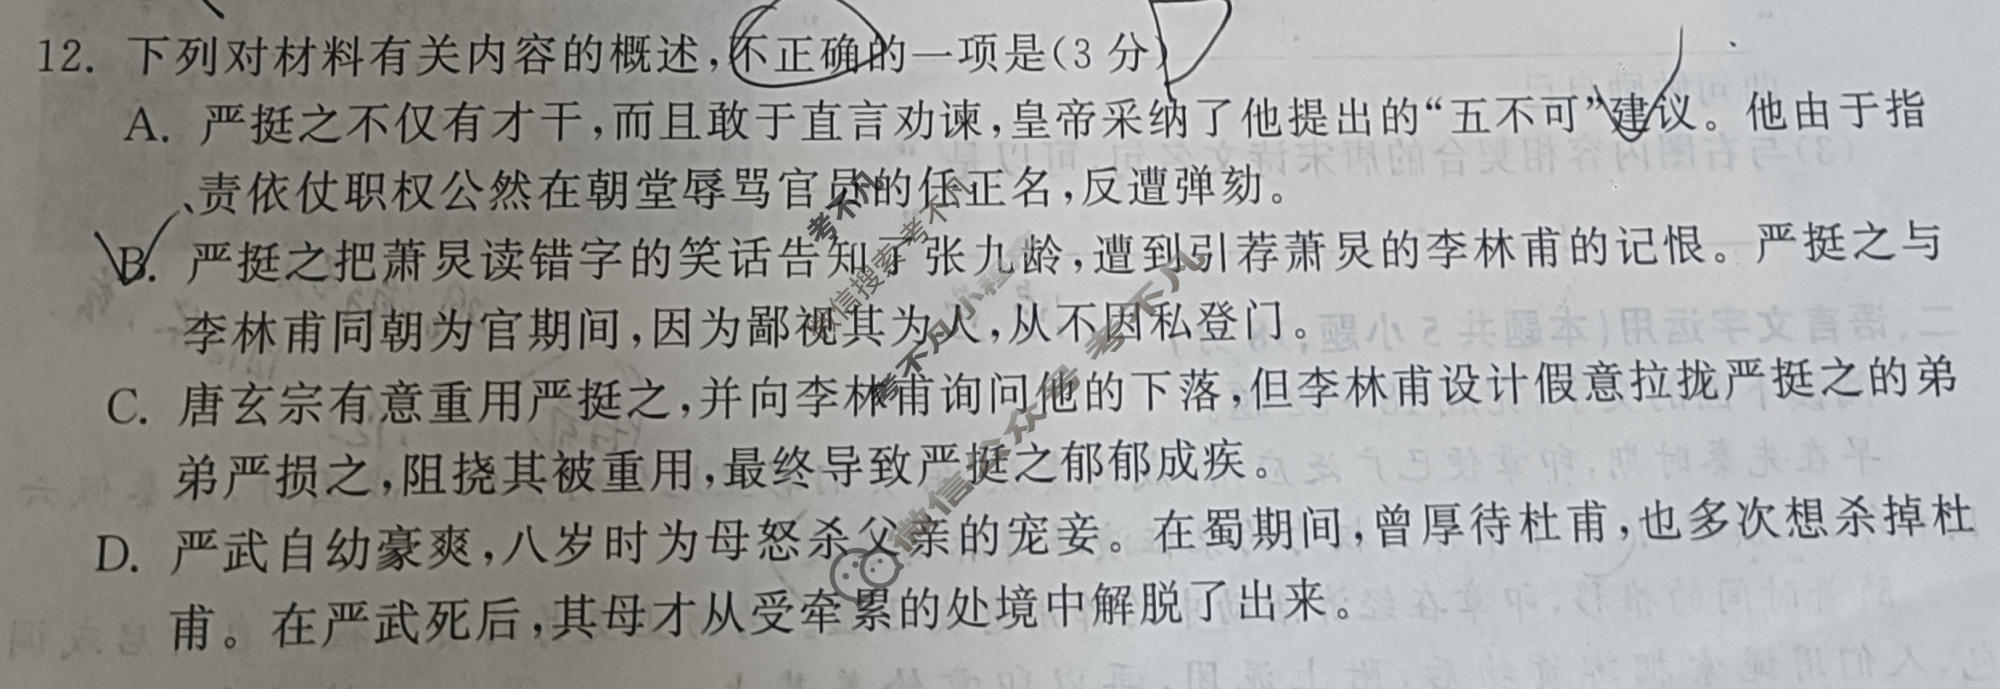 12. 下列对材料有关内容的概述,不正确的一项是(3分)
A. 严挺之不仅有才干,而且敢于直言劝谏,皇帝采纳了他提出的“五不可”建议。他由于指
责依仗职权公然在朝堂辱骂官员的任正名,反遭弹劾。
B. 严挺之把萧炅读错字的笑话告知了张九龄,遭到引荐萧炅的李林甫的记恨。严挺之与
李林甫同朝为官期间,因为鄙视其为人,从不因私登门。
C. 唐玄宗有意重用严挺之,并向李林甫询问他的下落,但李林甫设计假意拉拢严挺之的弟
弟严损之,阻挠其被重用,最终导致严挺之郁郁成疾。
D. 严武自幼豪爽,八岁时为母怒杀父亲的宠妾。在蜀期间,曾厚待杜甫,也多次想杀掉杜
甫。在严武死后,其母才从受牵累的处境中解脱了出来。
考不凡
微信搜索考不凡
考不凡小程序
微信公众号 考不凡